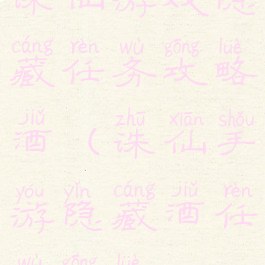 诛仙游戏隐
cáng rèn wù gōng lüè
藏任务攻略
jiǔ zhū xiān shǒu
酒（诛仙手
yóu yǐn cáng jiǔ rèn
游隐藏酒任
wù gōng lüè